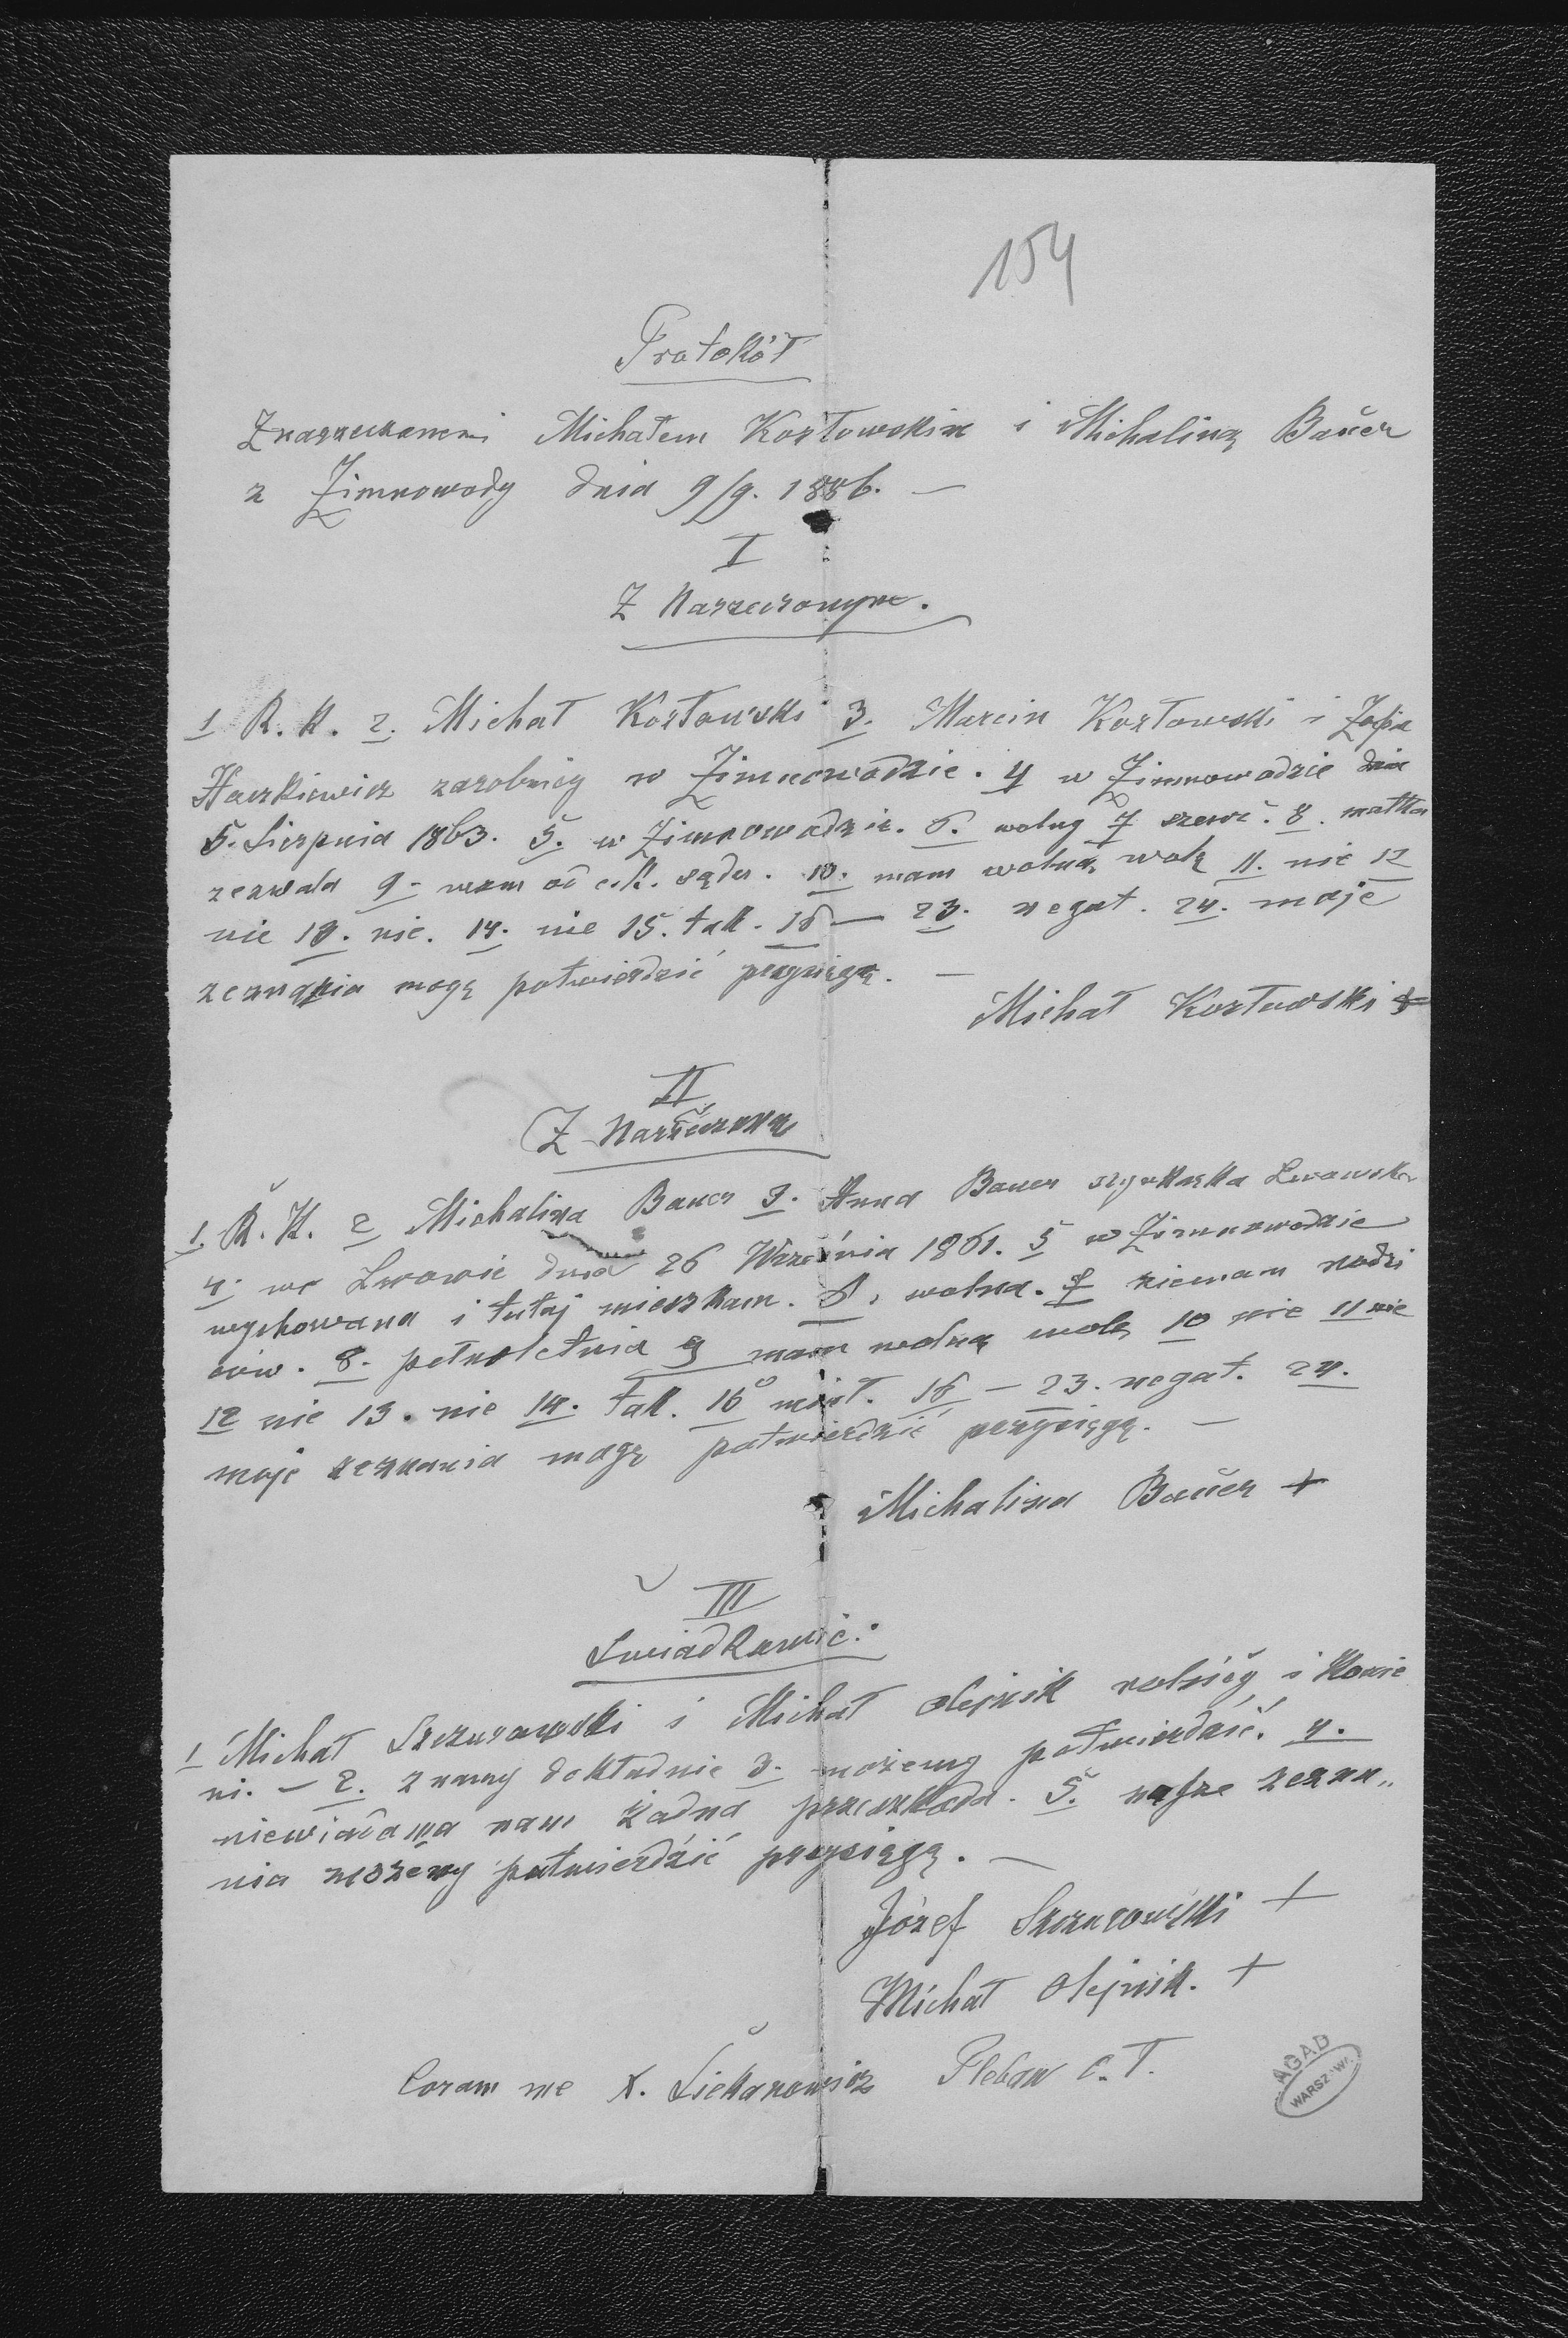 154
Protokół
Znarzeczonemi Michałem Kozłowskim i Michaliną Bauer
z Zimnowody dnia 9/9. 1886. —
I
Z Narzeczonym.
1 R. K. 2. Michał Kozłowski 3. Marcin Kozłowski i Zofia
Haszkiewicz zarobnicy w Zimnowodzie. 4 w Zimnowodzie dnia
5. Sierpnia 1863. 5. w Zimnowodzie. 6. wolny 7 szewc. 8. matka
zezwala 9. mam od c.k. sądu. 10. mam wolną wolę 11. nie 12
nie 13. nie. 14. nie 15. tak. 16 — 23. negat. 24. moje
zeznania mogę potwierdzić przysięgą. —
Michał Kozłowski +
II
Z Narzeczoną
1. R. K. 2 Michalina Bauer 3. Anna Bauer szynkarka Lwowska
4. we Lwowie dnia 26 Września 1861. 5 w Zimnowodzie
wychowana i tutaj mieszkam. 6. wolna. 7 niemam rodzi
ców. 8. pełnoletnia 9 mam wolną wolę 10 nie 11 nie
12 nie 13. nie 14. tak. 16 — 23. negat. 24.
moje zeznania mogę potwierdzić przysięgą. —
Michalina Bauer +
III
Świadkowie:
1 Michał Szczurowski i Michał Olejnik rolnicy i
ni. — 2. znamy dokładnie 3. możemy potwierdzić. 4.
niewiadama nam żadna przeszkoda. 5. nasze zezna„
nia możemy potwierdzić przysięgą. —
Józef Szczurowski +
Michał Olejnik. +
Coram me X. Pleban
AGAD
WARSZAWA